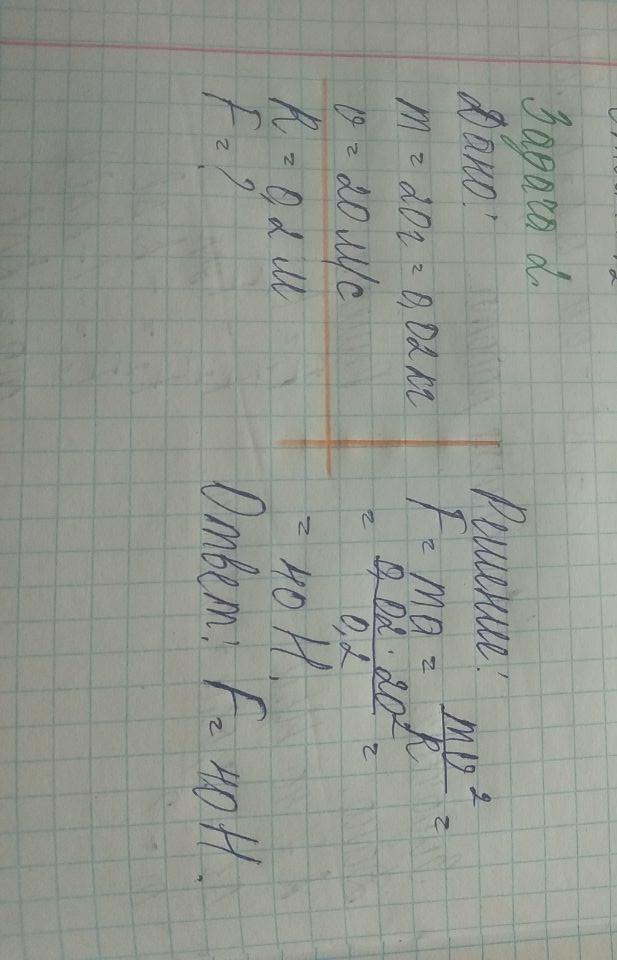 Задача 2.
Дано:
m = 20г = 0,02 кг
υ = 20 м/с
R = 0,2 м
F = ?
Решение:
F = ma = mυ²/R =
= 0,02 · 20²/0,2 =
= 40 Н.
Ответ: F = 40 Н.